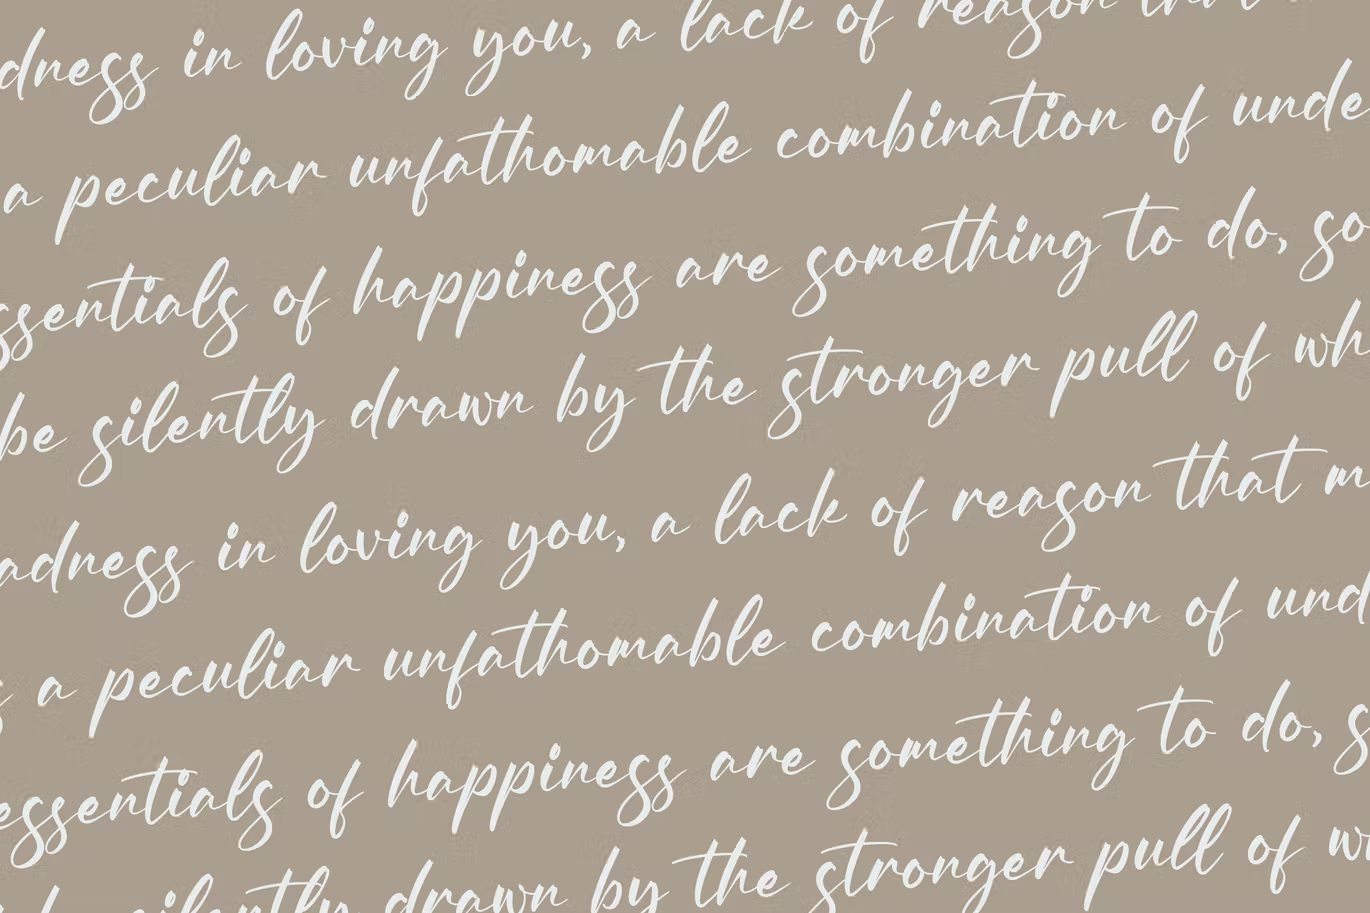 dness in loving you, a lack of reason that
a peculiar unfathomable combination of unde
ssentials of happiness are something to do, so
be silently drawn by the stronger pull of wh
adness in loving you, a lack of reason that m
s a peculiar unfathomable combination of und
essentials of happiness are something to do, s
be silently drawn by the stronger pull of w